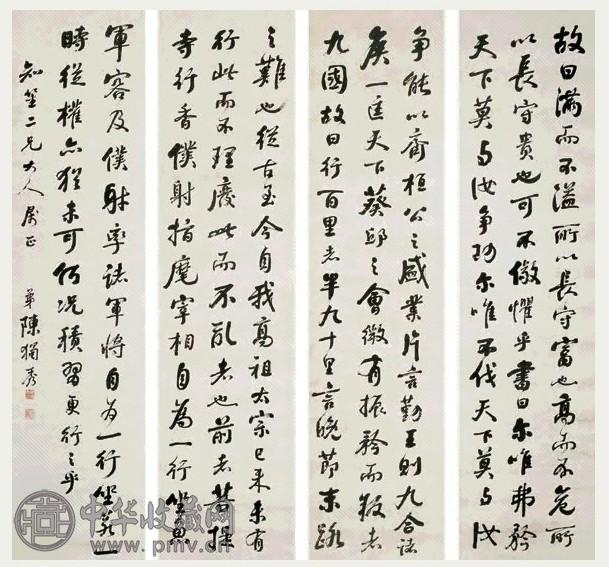 故曰滿而不溢所以長守富也高而不危所
以長守貴也可不儆懼乎書曰尔唯弗矜
天下莫与汝争功尔唯不伐天下莫与汝
争能以齊桓公之盛業片言勤王則九合諸
矦一匡天下葵邱之會微有振矜而叛者
九國故曰行百里者半九十里言晚節末路
之難也從古至今自我高祖太宗已来未有
行此而不理廢此而不亂者也前者菩提
寺行香僕射指麾宰相自為一行坐魚
軍容及僕射率諸軍將自為一行坐若一
時從權亦猶未可何况積習更行之乎
二兄大人属正 弟陳獨秀
中华收藏网
www.pmv.cn